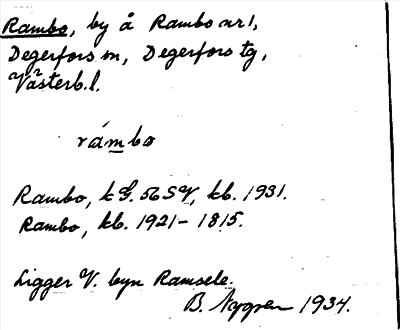 Rambo, by å Rambo nr 1,
Degerfors sn, Degerfors tg,
Västerb. l.
rámbo
Rambo, k G. 56 SV, kb. 1931.
Rambo, kb. 1921-1815.
Ligger V. byn Ramsele.
B. Nygren 1934.